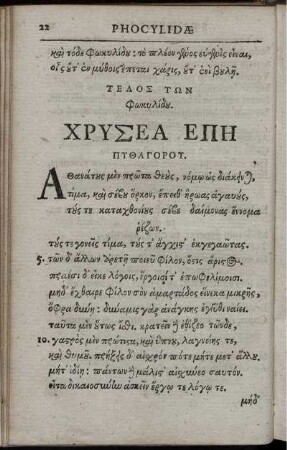 22 PHOCYLIDÆ
καὶ τόδε Φωκυλίδου: τὸ πλέον γένος εὐγενὲς εἶναι,
οἷς οὔτ' ἐν μύθοις ἕπεται χάρις, οὔτ' ἐνὶ βουλῇ.
ΤΕΛΟΣ ΤΩΝ
Φωκυλίδου.
ΧΡΥΣΕΑ ΕΠΗ
ΠΥΘΑΓΟΡΟΥ.
Ἀθανάτους μὲν πρῶτα θεοὺς, νόμῳ ὡς διάκεινται,
τίμα, καὶ σέβου ὅρκον, ἔπειθ' ἥρωας ἀγαυούς,
τούς τε καταχθονίους σέβου δαίμονας ἔννομα
ῥέζων.
τούς τε γονεῖς τίμα, τούς τ' ἄγχις' ἐκγεγαῶτας.
5. τῶν δ' ἄλλων ἀρετῇ ποιεῦ φίλον, ὅςις ἄρις Θ.
πραέσι δ' εἶκε λόγοις, ἔργοισί τ' ἐπωφελίμοισι.
μηδ' ἔχθαιρε φίλον σὸν ἁμαρτάδος εἵνεκα μικρῆς,
ὄφρα δύνῃ: δύναμις γὰρ ἀνάγκης ἐγγύθι ναίει.
ταῦτα μὲν οὕτως ἴσθι. κρατεῖν δ' ἐθίζεο τῶνδε,
10. γαςρὸς μὲν πρώτιςα, καὶ ὕπνου, λαγνείης τε,
καὶ θυμοῦ. πρήξῃς δ' αἰσχρόν ποτε μήτε μετ' ἄλλου,
μήτ' ἰδίῃ: πάντων δὲ μάλις' αἰσχύνεο σαυτόν.
εἶτα δικαιοσύνην ἀσκεῖν ἔργῳ τε λόγῳ τε.
μηδ'